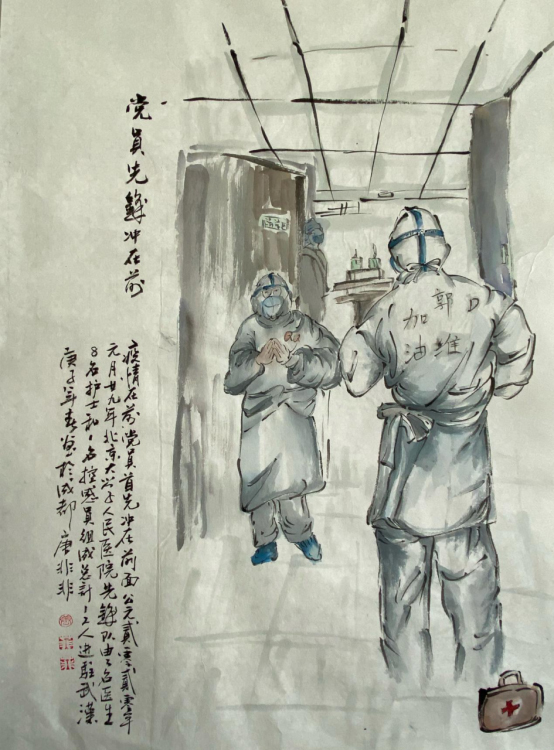 党员先鋒冲在前
疫情在前党员首先冲在前面公元貳零貳零年
元月廿九年北京大兴人民医院先鋒队由名医生
8名护士和1名控感员组成总计12人进駐武漢
庚子年春於成都 唐非非
郭维
加油